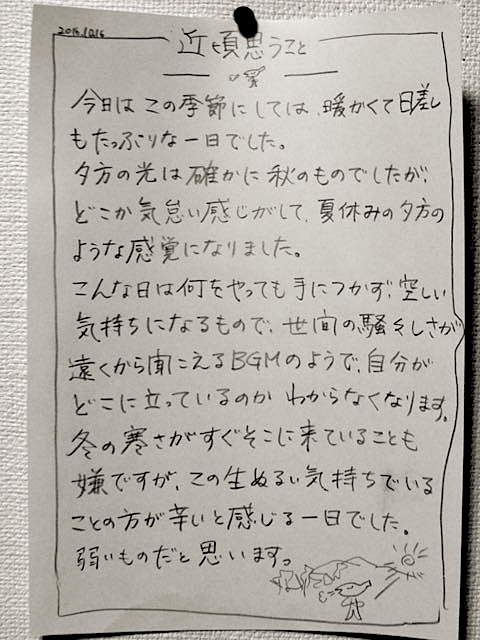 2016.10.16
近頃思うこと
今日はこの季節にしては、暖かくて日差し
もたっぷりな一日でした。
夕方の光は確かに秋のものでしたが、
どこか気怠い感じがして、夏休みの夕方の
ような感覚になりました。
こんな日は何をやっても手につかず、空しい
気持ちになるもので、世間の騒々しさが
遠くから聞こえるBGMのようで、自分が
どこに立っているのかわからなくなります。
冬の寒さがすぐそこに来ていることも
嫌ですが、この生ぬるい気持ちでいる
ことの方が辛いと感じる一日でした。
弱いものだと思います。